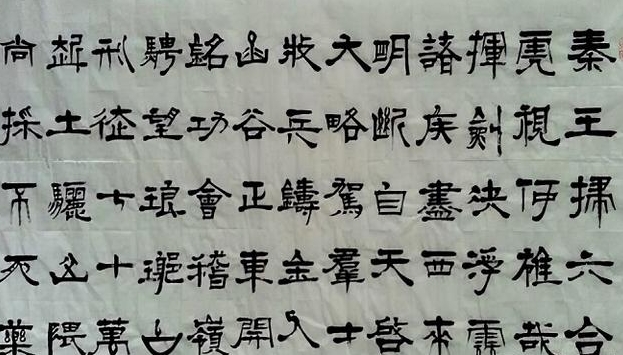 秦王掃六合
虎視伊雄哉
揮劍決浮雲
諸侯盡西來
明斷自天啓
大略駕羣才
收兵鑄金人
函谷正東開
銘功會稽嶺
騁望琅琊
刑徒七十萬
起土驪山隈
尚採不死藥